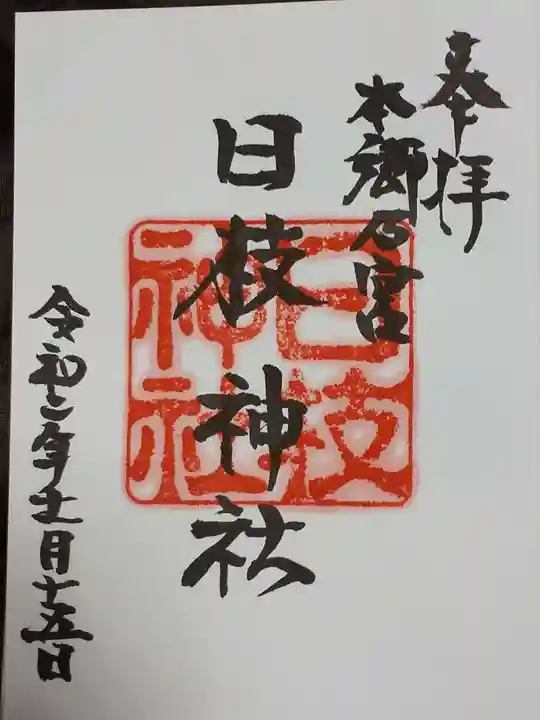 奉拝
本郷 宮
日枝神社
日枝
神社
令和二年 月十五日